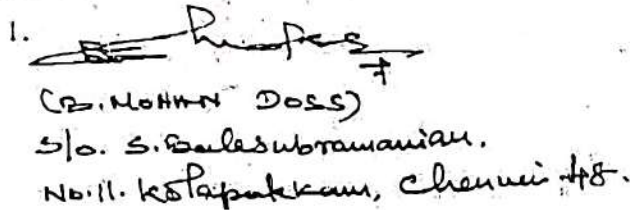 1.
(B. MOHAN DOSS)
S/o. S. Balasubramanian.
No. 11. Kolapakkam, Chennai 48.